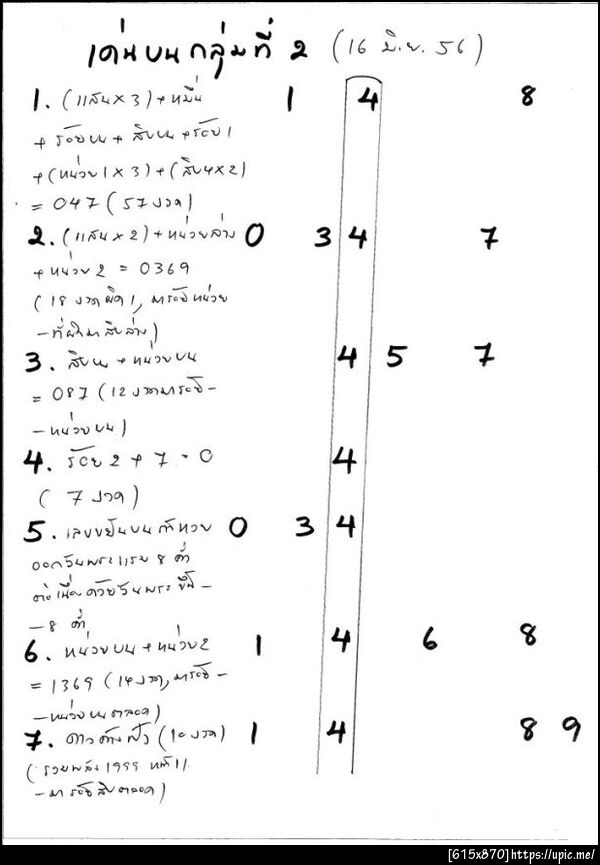 เด่นบนกลุ่มที่ 2 (16 มิ.ย. 56)
1. (แสน×3)+หมื่น 1 4 8
+ ร้อยบน + สิบบน + ร้อย1
+(หน่วย1×3)+(สิบ4×2)
= 047 (57 งวด)
2. (แสน×2)+หน่วยล่าง 0 3 4 7
+ หน่วย2 = 0369
(18 งวดผิด1, มาร้อยหน่วย
-ที่ผิดมาสิบล่าง)
3. สิบบน + หน่วยบน 4 5 7
= 087 (12 งวดมาร้อย-
-หน่วยบน)
4. ร้อย2 + 7 = 0 4
( 7 งวด)
5. เลขขยันบนถ้าหวย 0 3 4
ออกวันพระแรม 8 ค่ำ
ต่อเนื่องด้วยวันพระขึ้น-
-8 ค่ำ
6. หน่วยบน + หน่วย2 1 4 6 8
= 1369 (14 งวด, มาร้อย-
-หน่วยบนตลอด)
7. ดาวค้างฟ้า (10 งวด) 1 4 8 9
-มาร้อยสิบตลอด)
[615x870]https://upic.me/